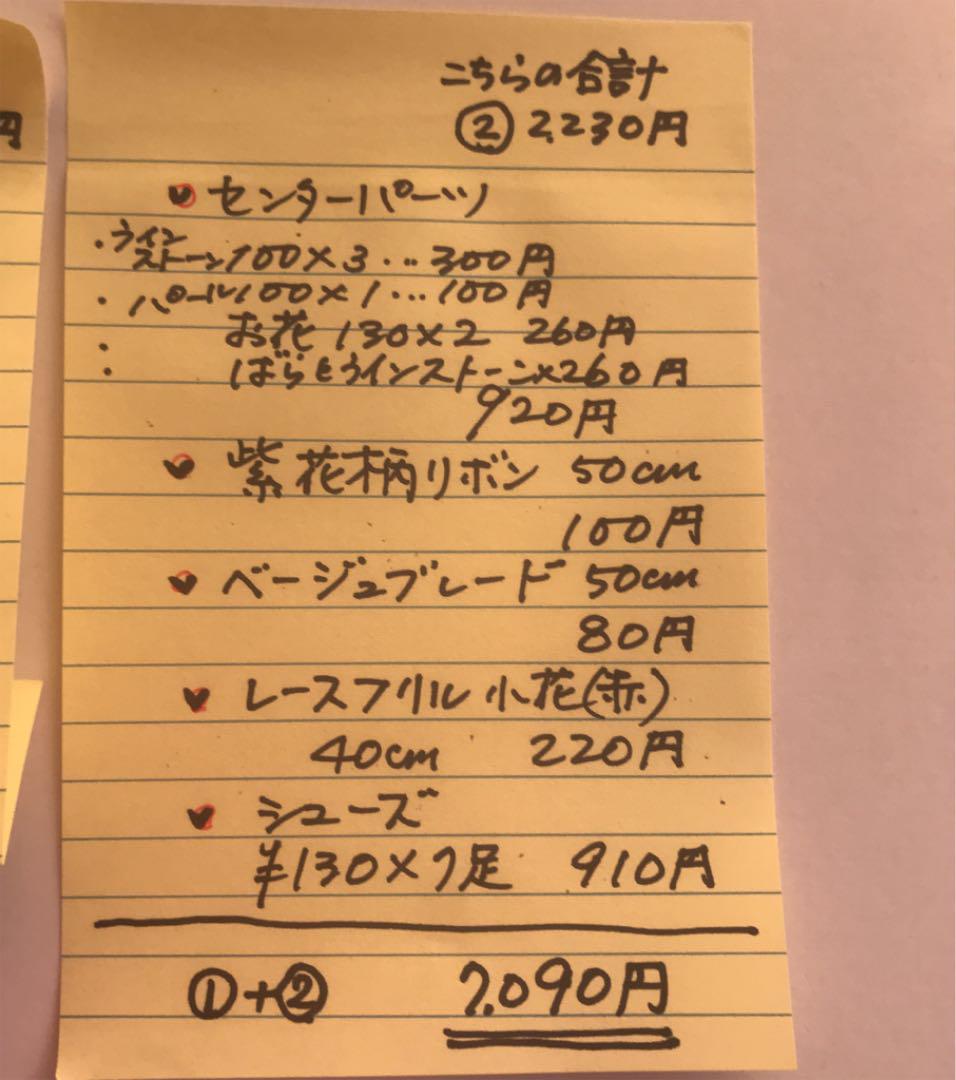 円
こちらの合計
② 2,230円
センターパーツ
・ラインストーン100×3…300円
・パール100×1…100円
・お花 130×2 260円
・ばらとラインストーン×260円
920円
紫花柄リボン 50cm
100円
ベージュブレード 50cm
80円
レースフリル小花(赤)
40cm 220円
シューズ
¥130×7足 910円
①+② 7,090円